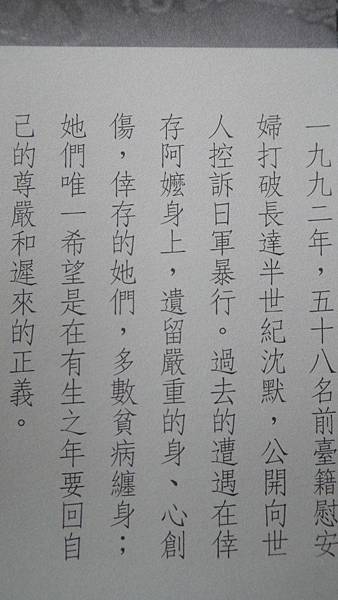 一九九二年，五十八名前臺籍慰安
婦打破長達半世紀沈默，公開向世
人控訴日軍暴行。過去的遭遇在倖
存阿嬤身上，遺留嚴重的身、心創
傷，倖存的她們，多數貧病纏身；
她們唯一希望是在有生之年要回自
己的尊嚴和遲來的正義。